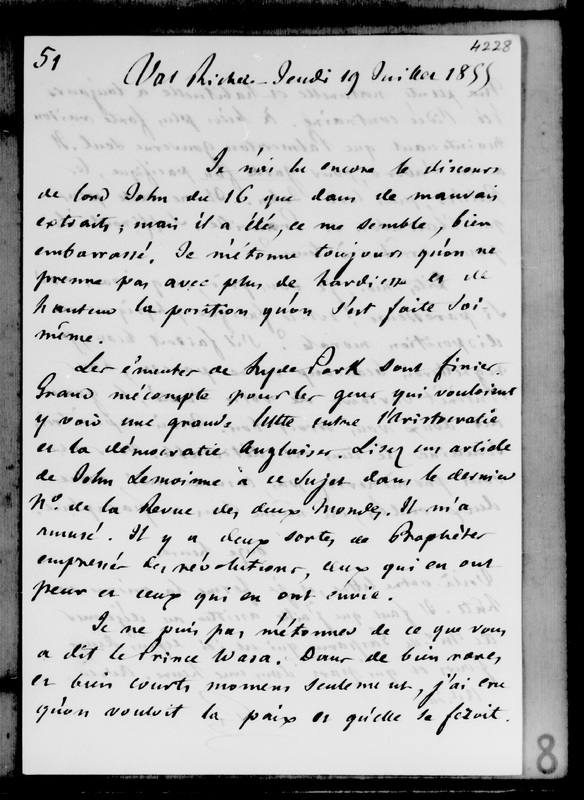 51
4228
Val Richer - Jeudi 19 Juillet 1855
Je n'ai lu encore le discours
de lord John du 16 que dans de mauvais
extraits ; mais il a été, ce me semble, bien
embarrassé. Je m'étonne toujours qu'on ne
prenne pas avec plus de hardiesse et de
hauteur la position qu'on s'est faite soi-
même.
Les émeutes de Hyde Park sont finies.
Grand mécompte pour les gens qui vouloient
y voir une grande lutte entre l'Aristocratie
et la démocratie Anglaises. Lisez un article
de John Lemoinne à ce sujet dans le dernier
No. de la Revue des deux Mondes. Il m'a
amusé. Il y a deux sortes de Prophètes
empressés des révolutions, ceux qui en ont
peur et ceux qui en ont envie.
Je ne puis pas m'étonner de ce que vous
a dit le Prince Wasa. Dans de bien rares
et bien courts momens seulement, j'ai cru
qu'on vouloit la paix et qu'elle se feroit.
8